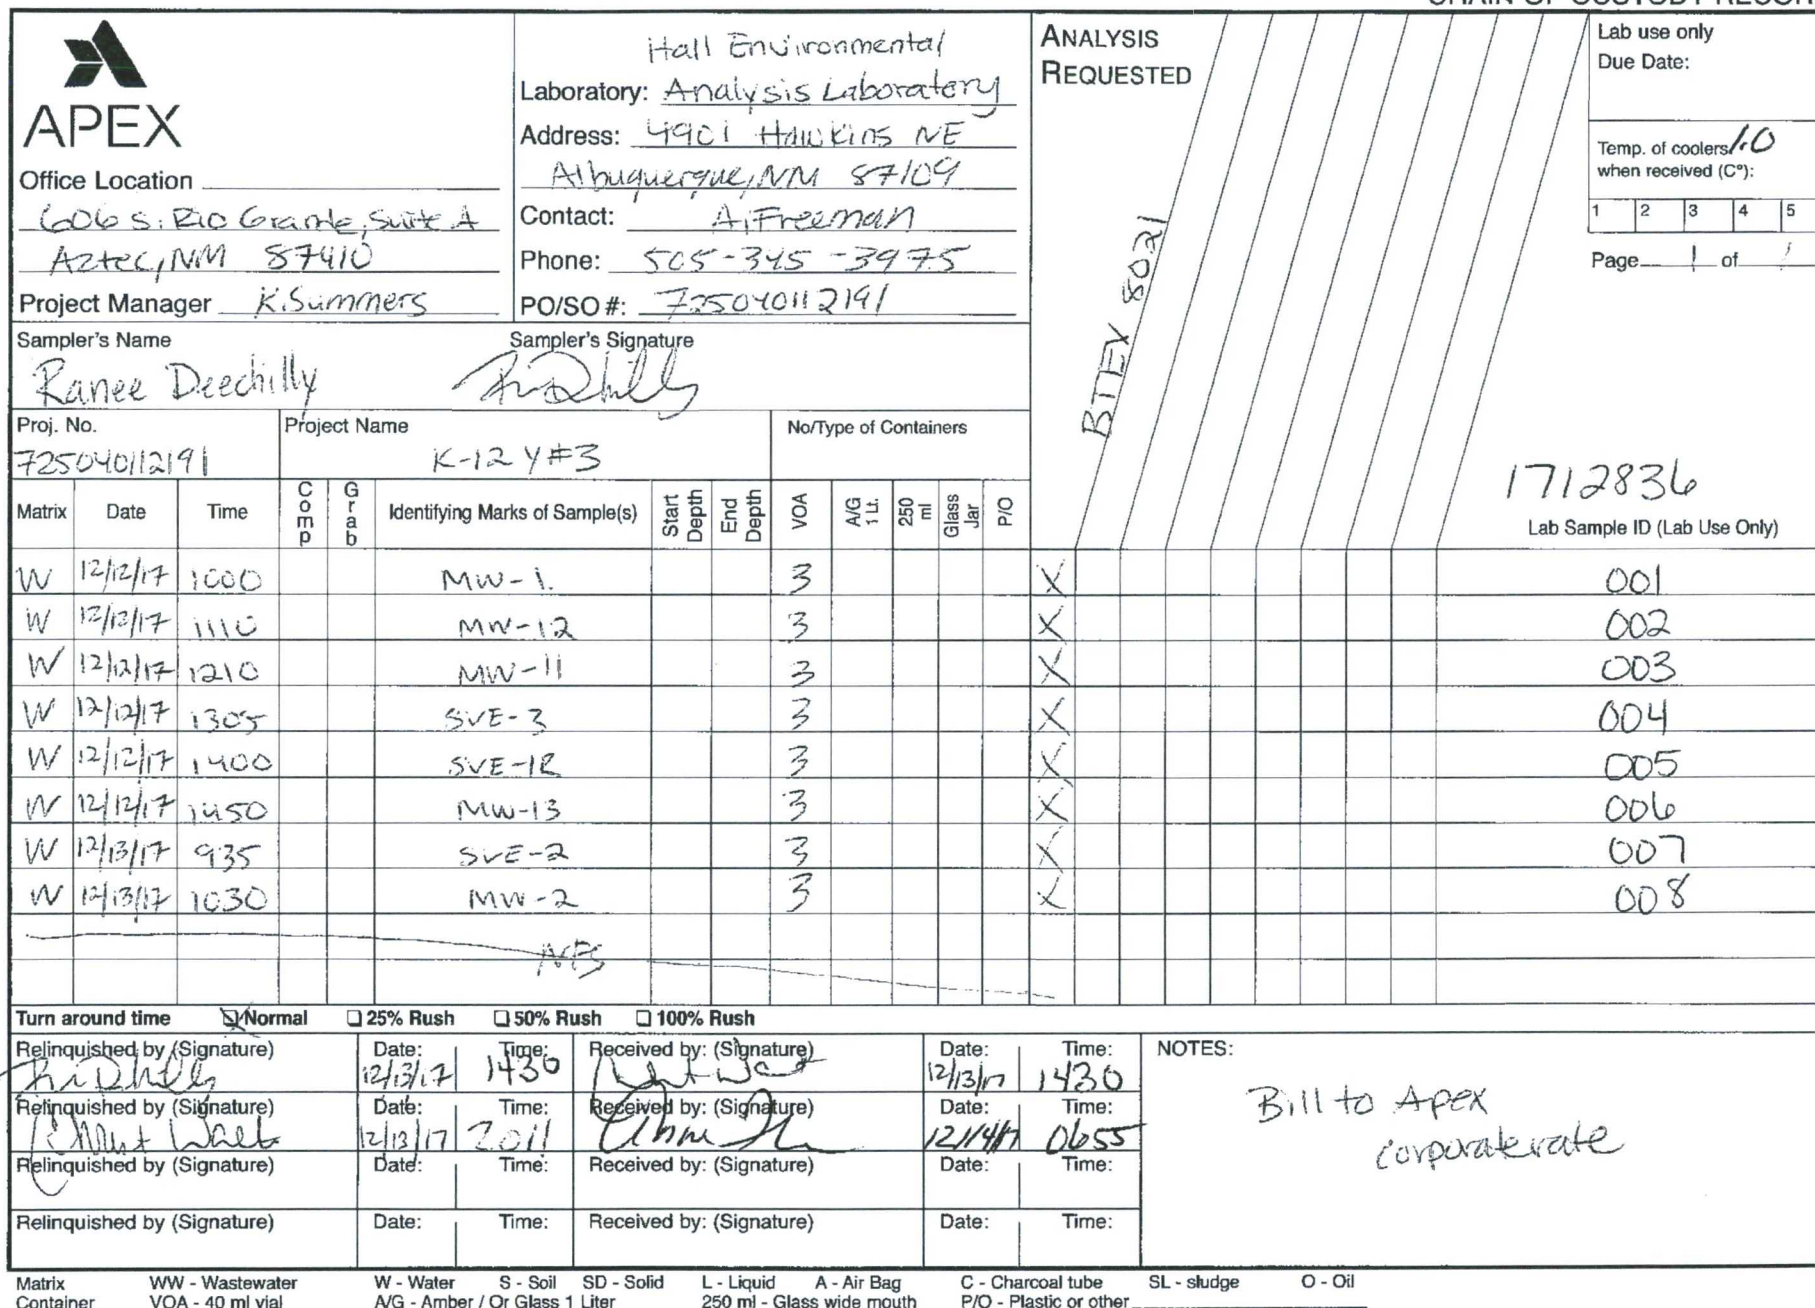 CHAIN OF CUSTODY RECORD
APEX
Office Location
606 S. Rio Grande, Suite A
Aztec, NM 87410
Project Manager K. Summers
Hall Environmental
Laboratory: Analysis Laboratory
Address: 4901 Hawkins NE
Albuquerque, NM 87109
Contact: A. Freeman
Phone: 505-345-3975
PO/SO #: 725040112191
ANALYSIS
REQUESTED
BTEX 8021
Lab use only
Due Date:
Temp. of coolers 1.0
when received (C°):
1 2 3 4 5
Page 1 of 1
Sampler's Name
Ranee Deechilly
Sampler's Signature
Proj. No.
725040112191
Project Name
K-12 Y#3
No/Type of Containers
1712836
Matrix Date Time Comp Grab Identifying Marks of Sample(s) Start Depth End Depth VOA A/G 1 Lt. 250 ml Glass Jar P/O Lab Sample ID (Lab Use Only)
W 12/12/17 1000 MW-1 3 X 001
W 12/12/17 1110 MW-12 3 X 002
W 12/12/17 1210 MW-11 3 X 003
W 12/12/17 1305 SVE-3 3 X 004
W 12/12/17 1400 SVE-12 3 X 005
W 12/12/17 1450 MW-13 3 X 006
W 12/13/17 935 SVE-2 3 X 007
W 12/13/17 1030 MW-2 3 X 008
Turn around time Normal 25% Rush 50% Rush 100% Rush
Relinquished by (Signature) Date: 12/13/17 Time: 1430 Received by: (Signature) Date: 12/13/17 Time: 1430
Relinquished by (Signature) Date: 12/13/17 Time: 2011 Received by: (Signature) Date: 12/14/17 Time: 0655
Relinquished by (Signature) Date: Time: Received by: (Signature) Date: Time:
Relinquished by (Signature) Date: Time: Received by: (Signature) Date: Time:
NOTES:
Bill to Apex
corporate rate
Matrix WW - Wastewater W - Water S - Soil SD - Solid L - Liquid A - Air Bag C - Charcoal tube SL - sludge O - Oil
Container VOA - 40 ml vial A/G - Amber / Or Glass 1 Liter 250 ml - Glass wide mouth P/O - Plastic or other